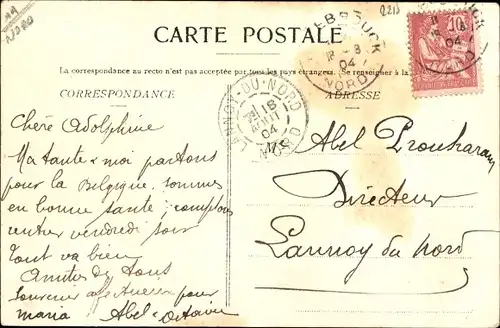 2213
CARTE POSTALE
La correspondance au recto n'est pas acceptée par tous les pays étrangers. Se renseigner à la
CORRESPONDANCE
ADRESSE
LANNOY-DU-NORD
18
AOUT
04
EBBROUCK
04
NORD
10
04
Chère Adolphine
Ma tante & moi partons
pour la Belgique, sommes
en bonne santé; comptons
rentrer vendredi soir
Tout va bien
Amitiés de tous
Souvenir affectueux pour
maria Abel - Octavie
Abel
Directeur
Lannoy du Nord